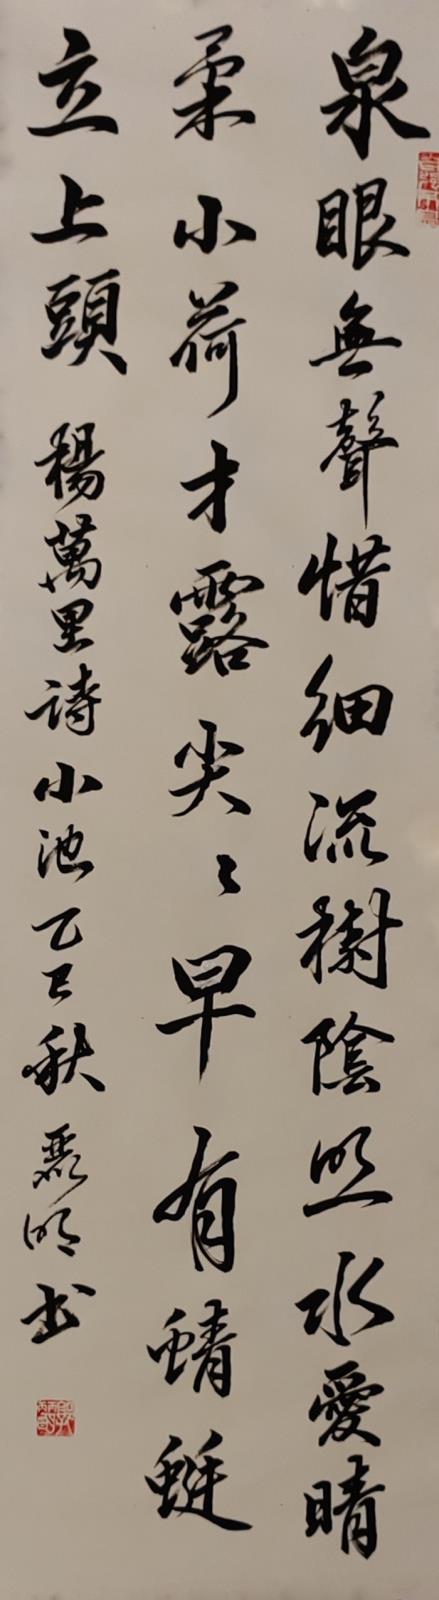 泉眼無聲惜細流樹陰照水愛晴
柔小荷才露尖〻早有蜻蜓
立上頭 楊萬里詩小池乙巳秋 明書